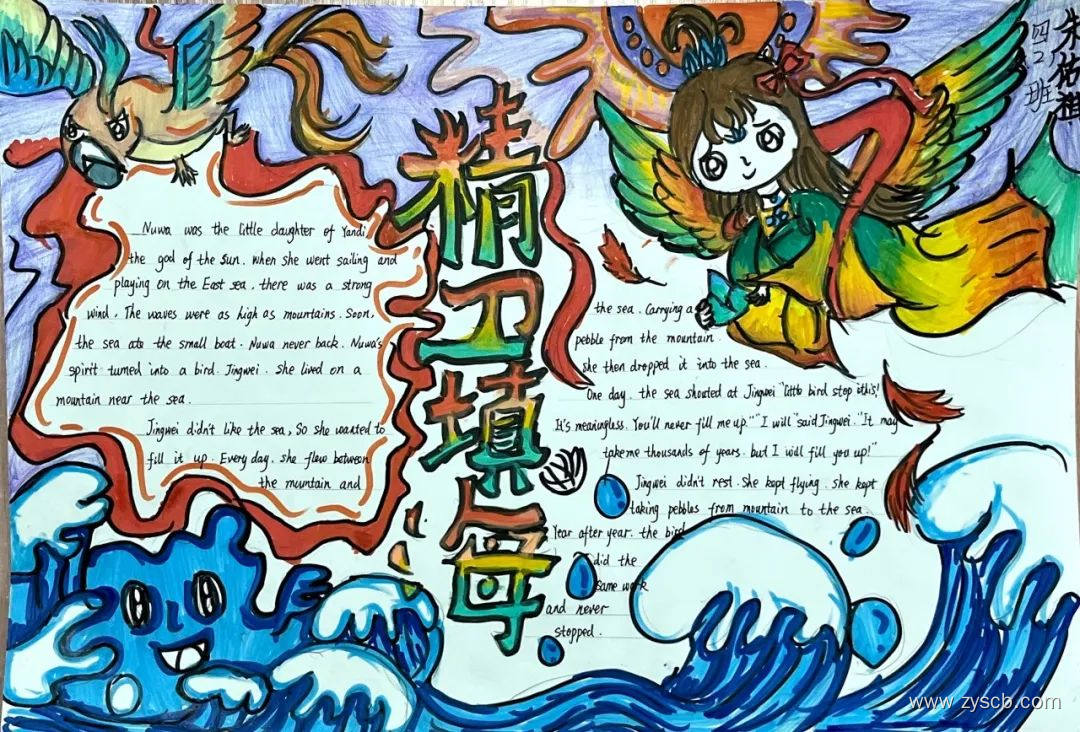 朱佑祖
四2班
精卫填海
Nuwa was the little daughter of Yandi,
the god of the sun. When she went sailing and
playing on the East sea. there was a strong
wind. The waves were as high as mountains. Soon,
the sea ate the small boat. Nuwa never back. Nuwa's
spirit turned into a bird. Jingwei. She lived on a
mountain near the sea.
Jingwei didn't like the sea, So she wanted to
fill it up. Every day. she flew between
the mountain and
the sea. Carrying a
pebble from the mountain.
she then dropped it into the sea.
One day. the sea shouted at Jingwei "little bird stop this!
It's meaningless. You'll never fill me up." "I will" said Jingwei. "It may
take me thousands of years. but I will fill you up!"
Jingwei didn't rest. She kept flying. She kept
taking pebbles from mountain to the sea.
Year after year. the bird
did the
same work
and never
stopped.
www.zyscb.com